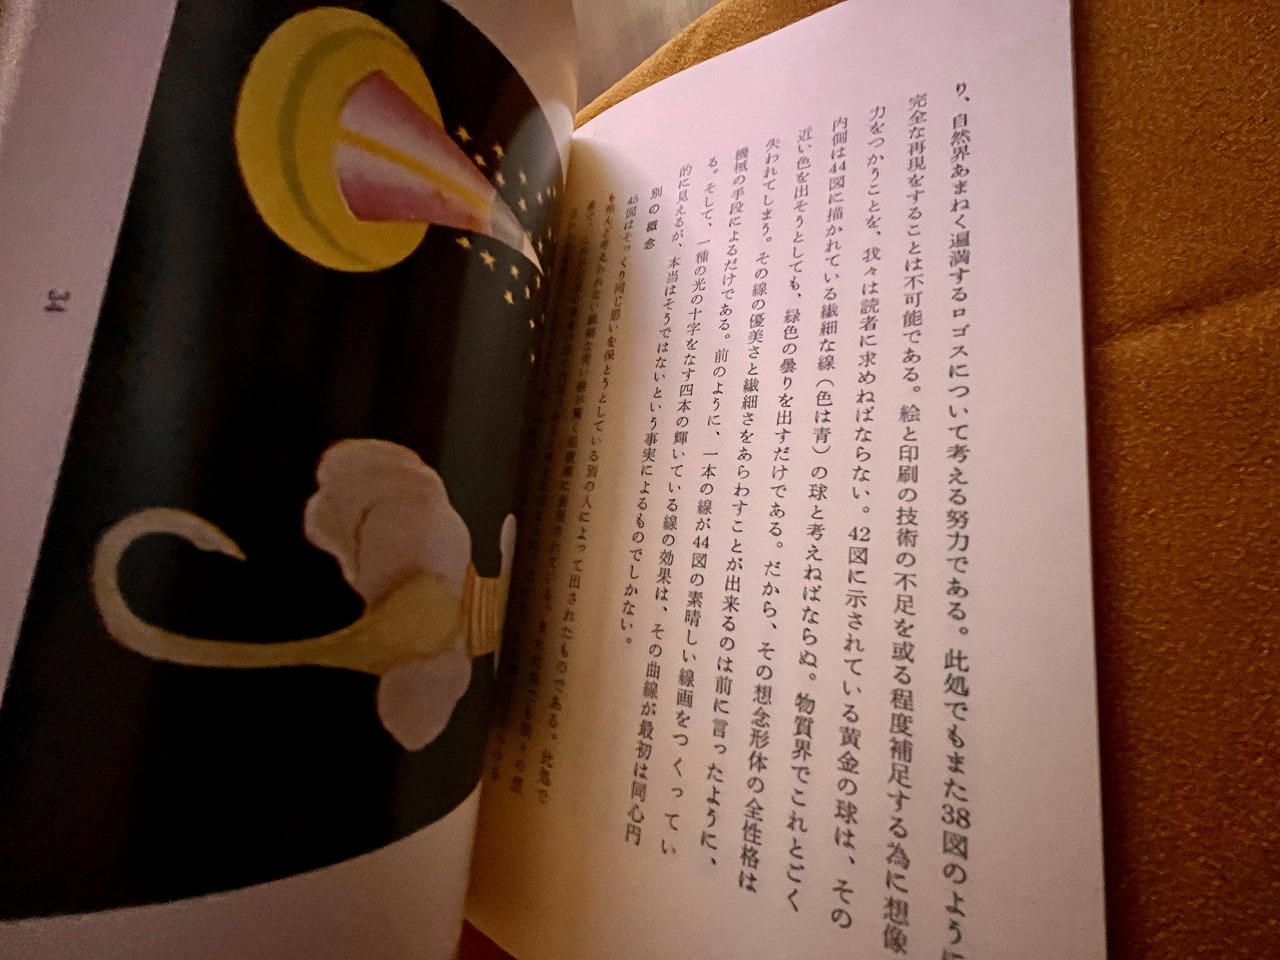 り、自然界あまねく遍満するロゴスについて考える努力である。此処でもまた38図のように
完全な再現をすることは不可能である。絵と印刷の技術の不足を或る程度補足する為に想像
力をつかうことを、我々は読者に求めねばならない。42図に示されている黄金の球は、その
内側は44図に描かれている繊細な線（色は青）の球と考えねばならぬ。物質界でこれとごく
近い色を出そうとしても、緑色の曇りを出すだけである。だから、その想念形体の全性格は
失われてしまう。その線の優美さと繊細さをあらわすことが出来るのは前に言ったように、
機械の手段によるだけである。前のように、一本の線が44図の素晴しい線画をつくってい
る。そして、一種の光の十字をなす四本の輝いている線の効果は、その曲線が最初は同心円
的に見えるが、本当はそうではないという事実によるものでしかない。
別の概念
45図はそっくり同じ思いを保とうとしている別の人によって出されたものである。此処で
34